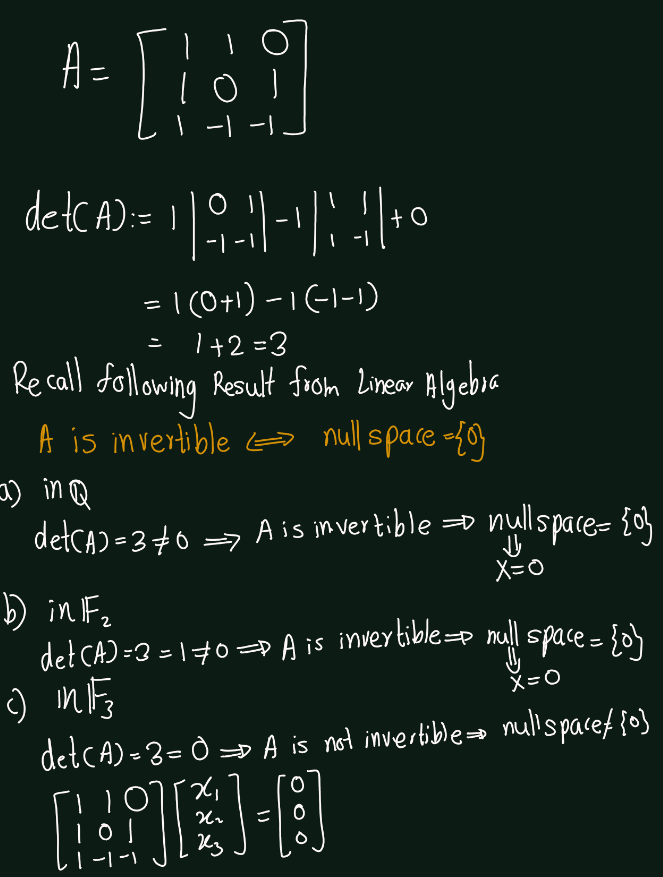 A = [ 1 1 0
1 0 1
1 -1 -1 ]
det(A) := 1 | 0 1 ; -1 -1 | - 1 | 1 1 ; 1 -1 | + 0
= 1 (0+1) - 1 (-1-1)
= 1+2 = 3
Recall following Result from Linear Algebra
A is invertible ⟺ null space = {0}
a) in ℚ
det(A) = 3 ≠ 0 ⟹ A is invertible ⟹ null space = {0}
⇓
X=0
b) in 𝔽₂
det(A) = 3 = 1 ≠ 0 ⟹ A is invertible ⟹ null space = {0}
⇓
X=0
c) in 𝔽₃
det(A) = 3 = 0 ⟹ A is not invertible ⟹ null space ≠ {0}
[ 1 1 0 ] [ x₁ ] = [ 0 ]
[ 1 0 1 ] [ x₂ ] [ 0 ]
[ 1 -1 -1 ] [ x₃ ] [ 0 ]